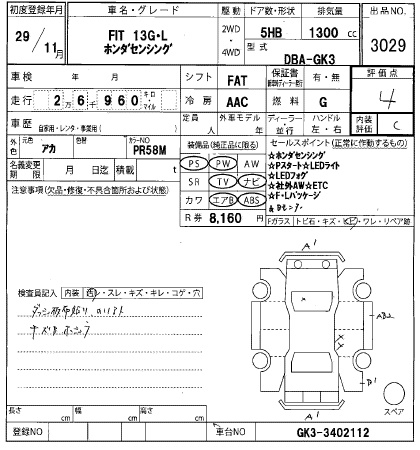 初度登録年月
29/11月
車名・グレード
FIT 13G・L
ホンダセンシング
駆動
2WD
・
4WD
ドア数・形状
5HB
排気量
1300 cc
型式
DBA-GK3
出品NO.
3029
車検 年 月
シフト FAT
保証書
有・無
評価点
4
走行 2万6千960 キロ・マイル
冷房 AAC
燃料 G
車歴 自家用・レンタ・事業用( )
定員 人
外車モデル 年
ディーラー・並行
ハンドル 左・右
内装評価 C
外色 元色 アカ
カラーNO PR58M
名義変更期限 月 日迄
積載 t
装備品(純正品に限る)
PS PW AW
SR TV ナビ
カワ エアB ABS
R券 8,160 円
セールスポイント(正常に作動するもの)
☆ホンダセンシング
☆Pスタート☆LEDライト
☆LEDフォグ
☆社外AW☆ETC
☆F・Lパッケージ
注意事項(欠品・修復・不具合箇所および状態)
Fガラス トビ石・キズ・ヒビ・ワレ・リペア跡
検査員記入 内装 汚れ・スレ・キズ・キレ・コゲ・穴
A1
X
X
A1
スペア
長さ cm
幅 cm
高さ cm
登録NO
車台NO GK3-3402112